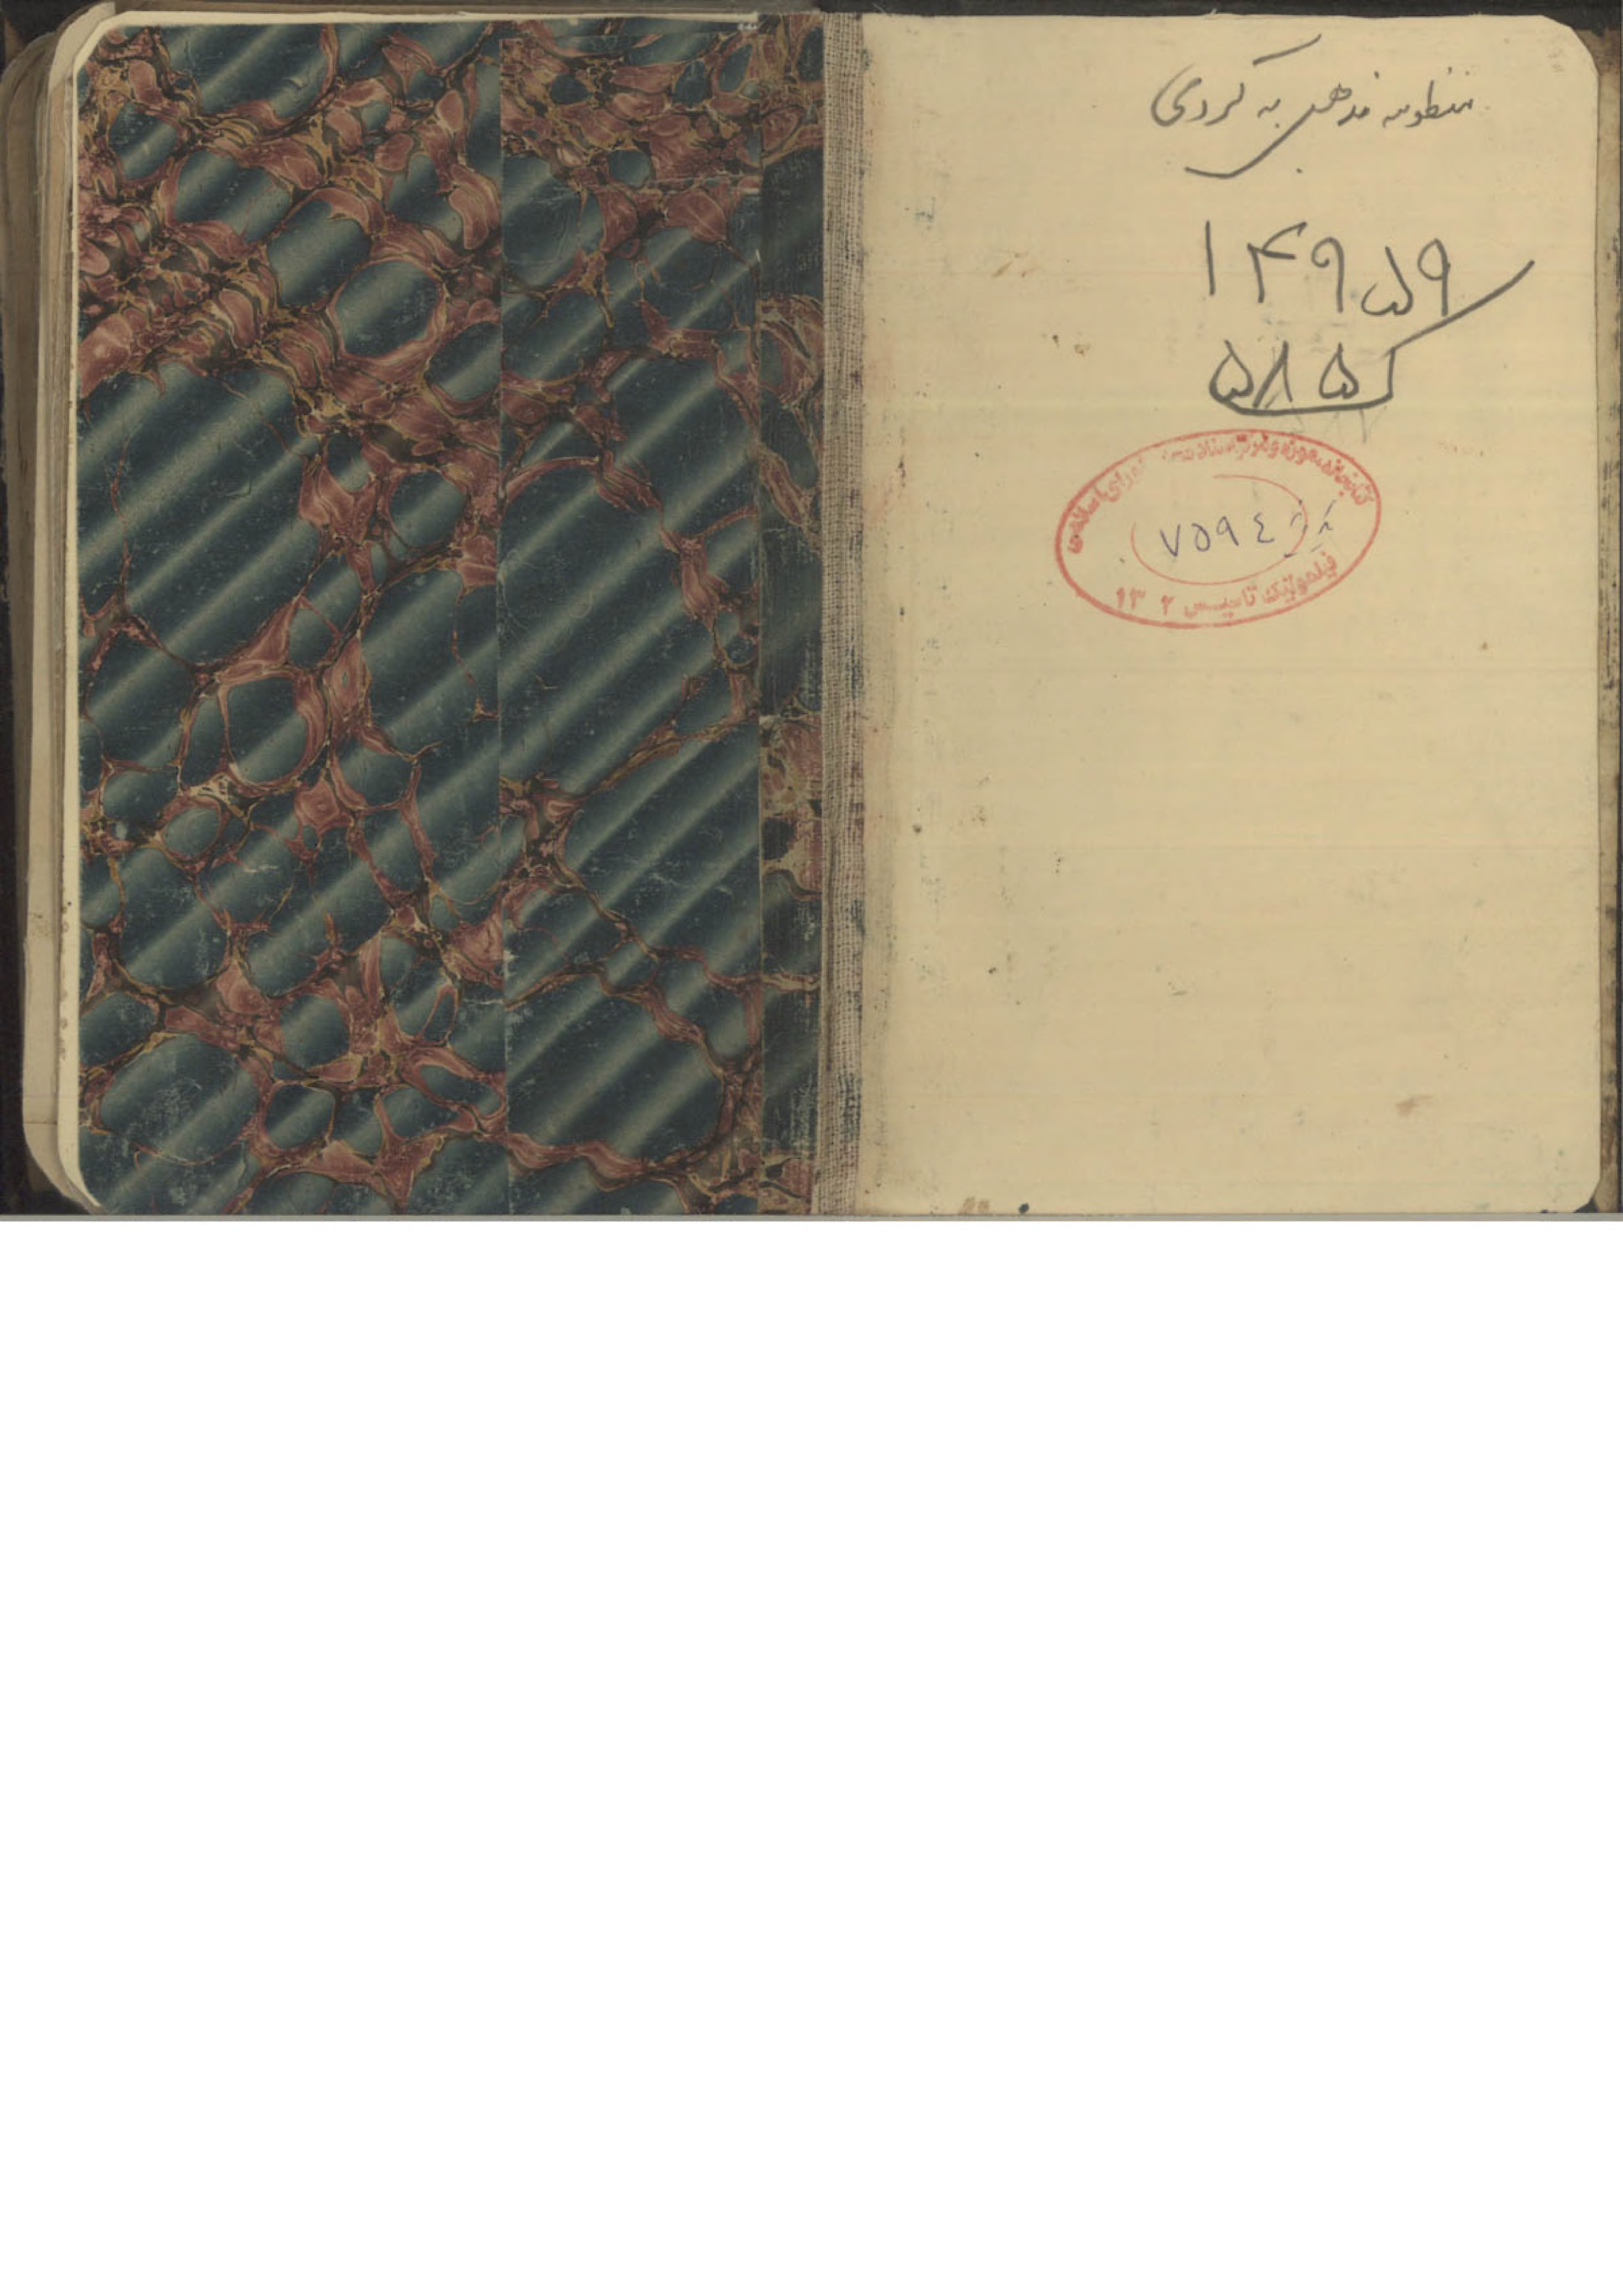 منظومه مذهبی به کردی
۱۴۹۵۹
۵۸۵
کتابخانه، موزه و مرکز اسناد مجلس شورای اسلامی
۷۵۹٤
تاسیس ۱۳۰۲